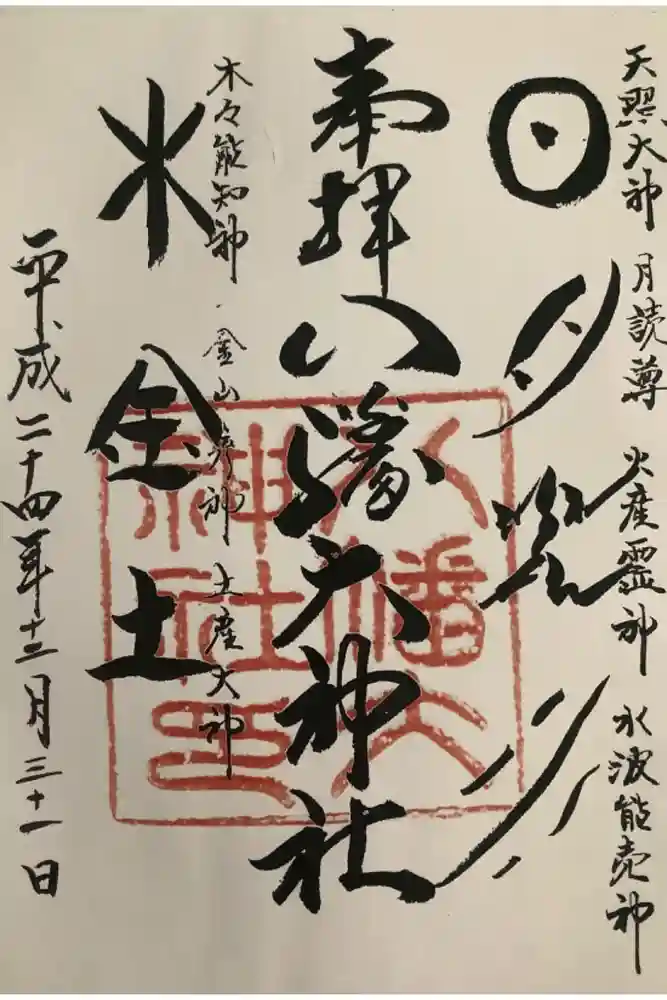 天照大神 月読尊 火産霊神 水波能売神
日月火水
奉拝 八幡大神社
木々能知神 金山彦神 土産大神
木金土
平成二十四年十二月三十一日
八幡大
神社印